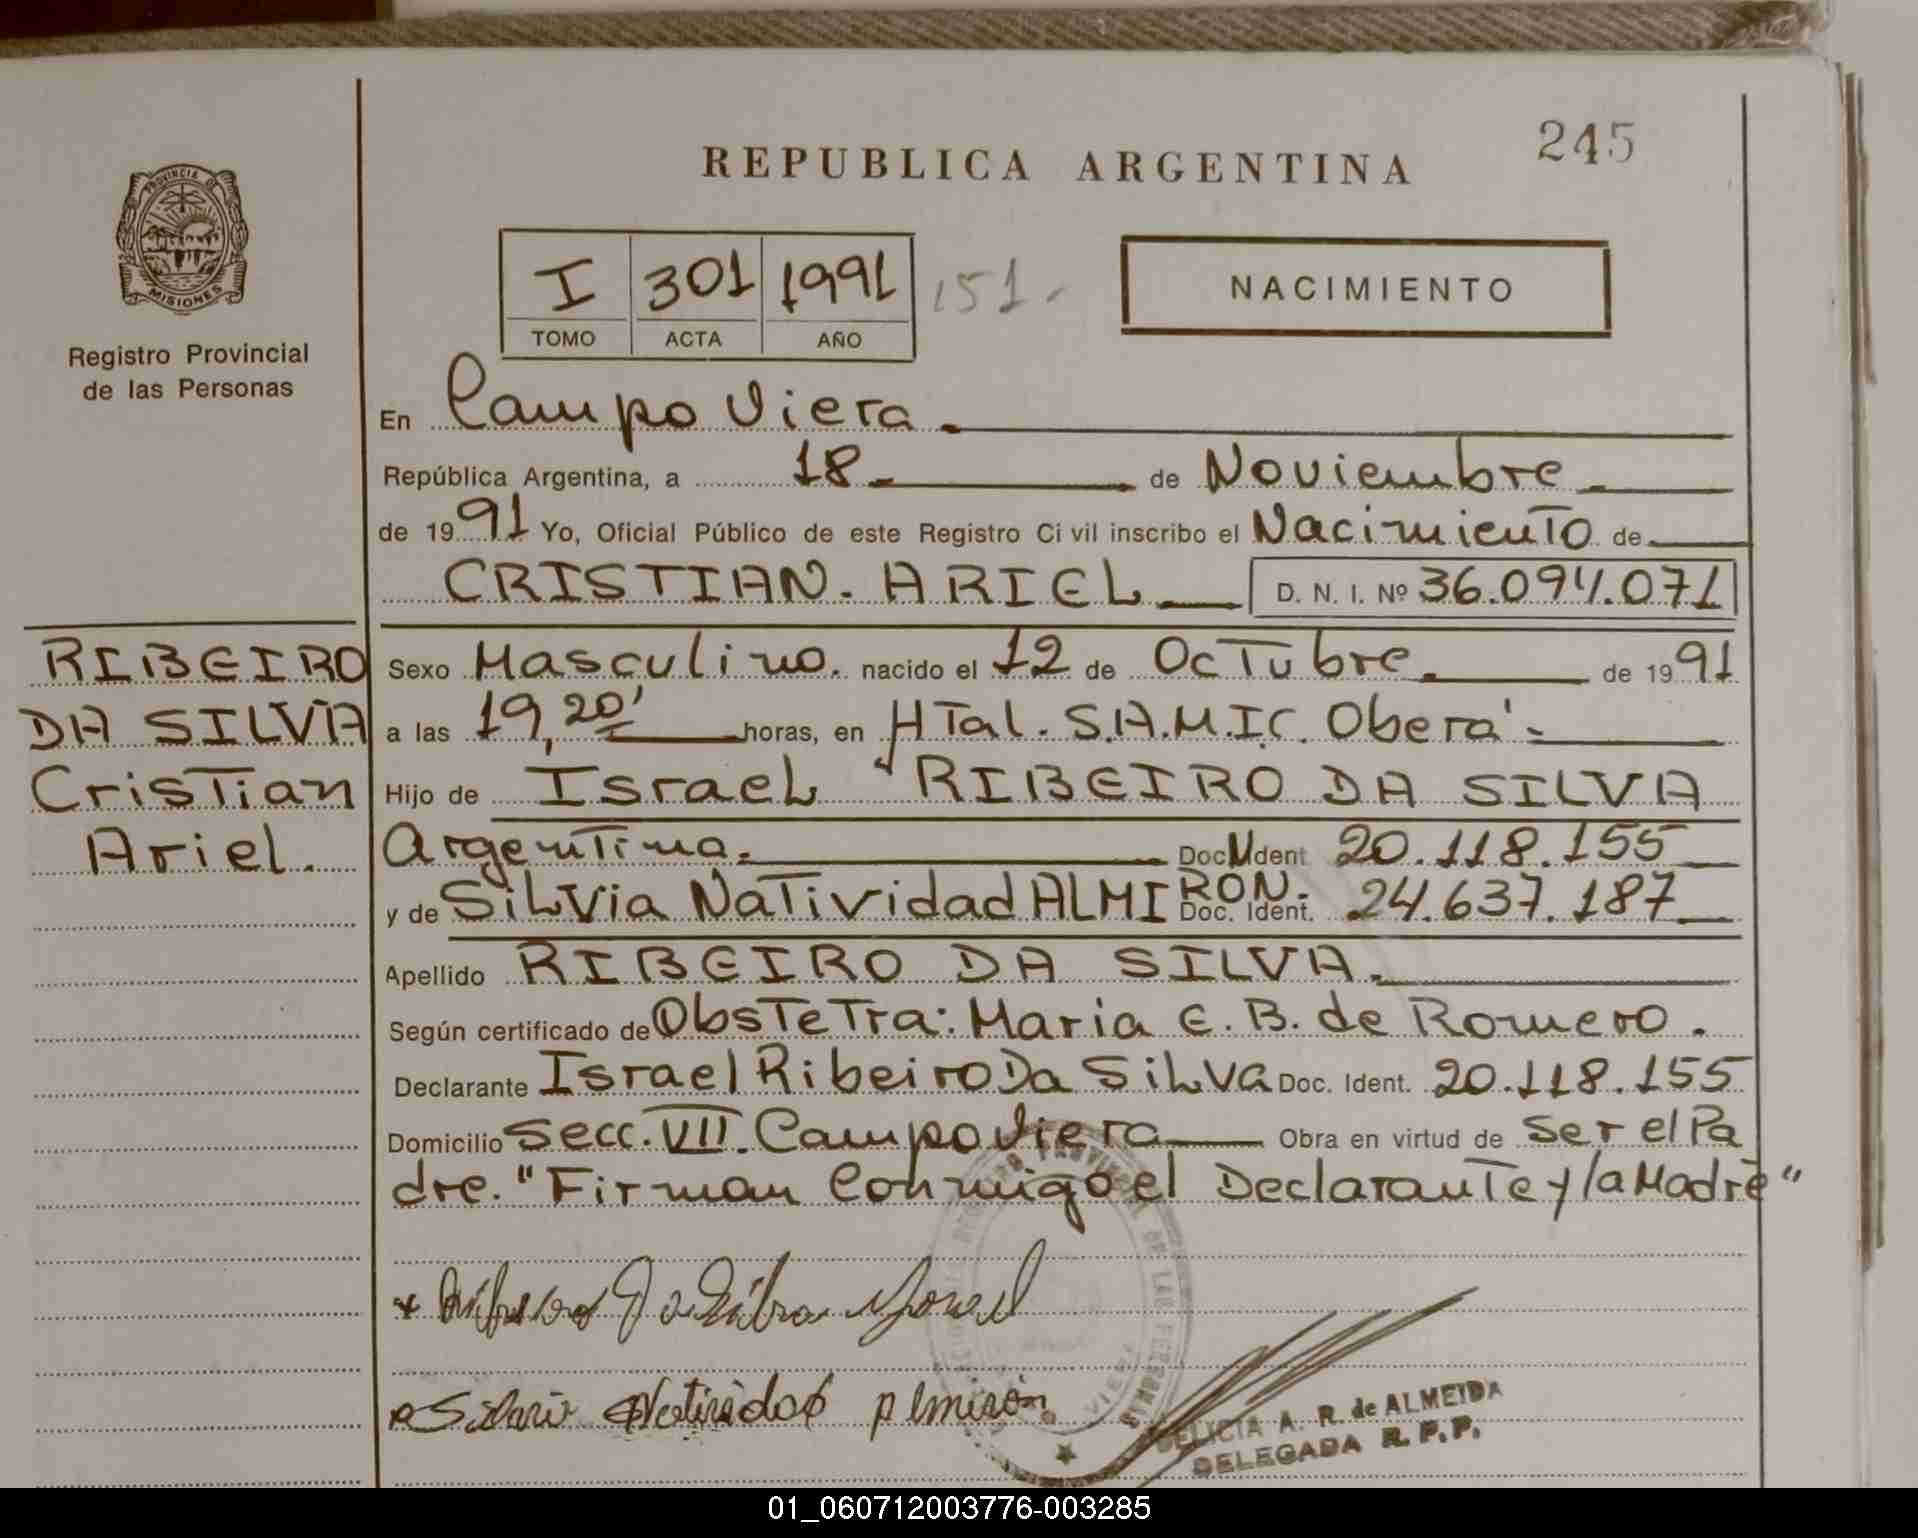 245
REPUBLICA ARGENTINA
PROVINCIA DE
MISIONES
Registro Provincial
de las Personas
I 301 1991
TOMO ACTA AÑO
151-
NACIMIENTO
En Campo Viera.
República Argentina, a 18 de Noviembre
de 1991 Yo, Oficial Público de este Registro Civil inscribo el Nacimiento de
CRISTIAN. ARIEL D. N. I. Nº 36.094.071
RIBEIRO
DA SILVA
Cristian
Ariel.
Sexo Masculino. nacido el 12 de Octubre de 1991
a las 19,20' horas, en HTal. S.A.M.I.C. Oberá.
Hijo de Israel RIBEIRO DA SILVA
Argentina. Doc. Ident 20.118.155
y de Silvia Natividad ALMIRON. Doc. Ident. 24.637.187
Apellido RIBEIRO DA SILVA.
Según certificado de Obstetra: Maria E. B. de Romero.
Declarante Israel Ribeiro Da Silva Doc. Ident. 20.118.155
Domicilio Secc. VII. Campo Viera Obra en virtud de Ser el Pa
dre. "Firman Conmigo el Declarante y la Madre"
Da Silva
almirón
DELICIA A. R. de ALMEIDA
DELEGADA R. P. P.
01_060712003776-003285